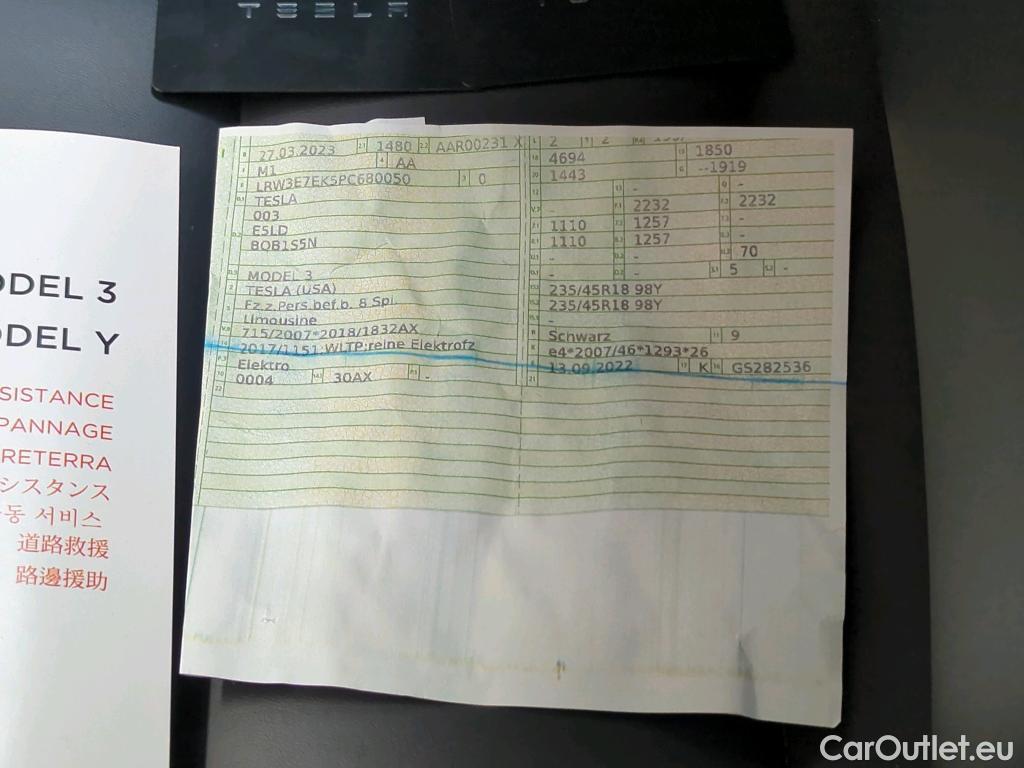 TESLA
ODEL 3
ODEL Y
SISTANCE
PANNAGE
RETERRA
シスタンス
동 서비스
道路救援
路邊援助
B 27.03.2023 2.1 1480 2.2 AAR00231 X
J M1 4 AA
E LRW3E7EK5PC680050 3 0
D.1 TESLA
003
D.2 E5LD
BOB1S5N
D.3 MODEL 3
2 TESLA (USA)
5 Fz.z.Pers.bef.b. 8 Spl.
Limousine
V.9 715/2007*2018/1832AX
14 2017/1151;WLTP:reine Elektrofz
P.3 Elektro
10 0004 14.1 30AX P.1 -
22
L 2 9 2
18 4694 19 1850
20 1443 G --1919
12 - 13 - Q -
V.7 - F.1 2232 F.2 2232
7.1 1110 7.2 1257 7.3 -
8.1 1110 8.2 1257 8.3 -
U.1 - U.2 - U.3 70
O.1 - O.2 - S.1 5 S.2 -
15.1 235/45R18 98Y
15.2 235/45R18 98Y
R Schwarz 11 9
K e4*2007/46*1293*26
6 13.09.2022 17 K 16 GS282536
21
CarOutlet.eu